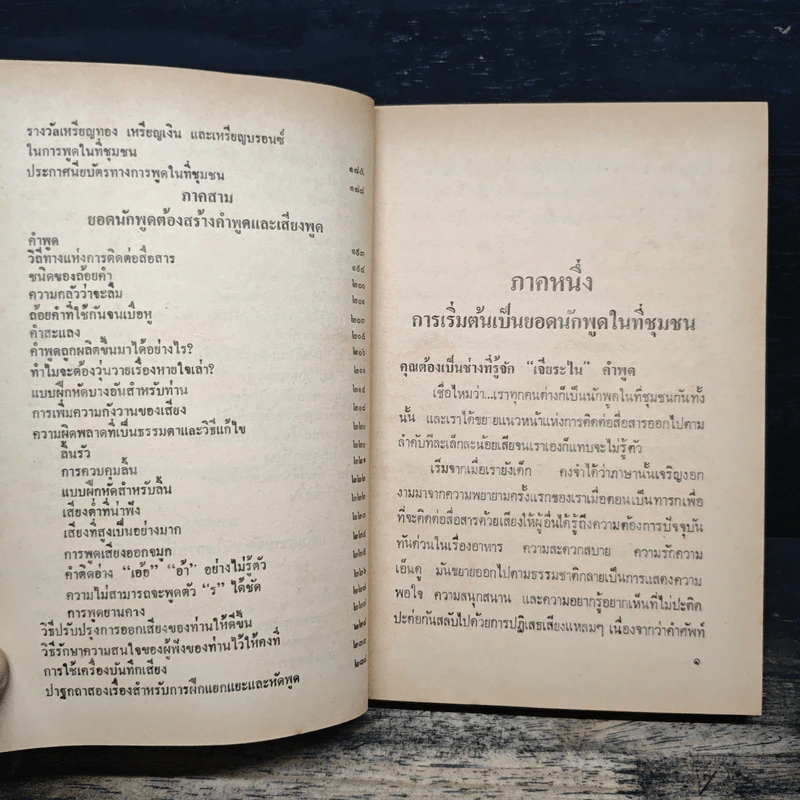 รางวัลเหรียญทอง เหรียญเงิน และเหรียญบรอนซ์
ในการพูดในที่ชุมชน ๑๘๕
ประกาศนียบัตรทางการพูดในที่ชุมชน ๑๘๘
ภาคสาม
ยอดนักพูดต้องสร้างคำพูดและเสียงพูด
คำพูด ๑๙๓
วิถีทางแห่งการติดต่อสื่อสาร ๑๙๔
ชนิดของถ้อยคำ ๒๐๐
ความกลัวว่าจะลืม ๒๐๑
ถ้อยคำที่ใช้กันจนเบื่อหู ๒๐๓
คำสะแลง ๒๐๕
คำพูดถูกผลิตขึ้นมาได้อย่างไร? ๒๐๖
ทำไมจะต้องวุ่นวายเรื่องหายใจเล่า? ๒๑๐
แบบฝึกหัดบางอันสำหรับท่าน ๒๑๔
การเพิ่มความกังวานของเสียง ๒๑๘
ความผิดพลาดที่เป็นธรรมดาและวิธีแก้ไข ๒๒๐
ลิ้นรัว ๒๒๑
การควบคุมลิ้น ๒๒๒
แบบฝึกหัดสำหรับลิ้น ๒๒๒
เสียงต่ำที่น่าฟัง ๒๒๓
เสียงที่สูงเป็นอย่างมาก ๒๒๔
การพูดเสียงออกจมูก ๒๒๕
คำติดอ่าง “เอ้อ” “อ้า” อย่างไม่รู้ตัว ๒๒๖
ความไม่สามารถจะพูดตัว “ร” ได้ชัด ๒๒๗
การพูดยานคาง ๒๒๗
วิธีปรับปรุงการออกเสียงของท่านให้ดีขึ้น ๒๒๘
วิธีรักษาความสนใจของผู้ฟังของท่านไว้ให้คงที่ ๒๓๐
การใช้เครื่องบันทึกเสียง
ปาฐกถาสองเรื่องสำหรับการฝึกแยกแยะและหัดพูด
ภาคหนึ่ง
การเริ่มต้นเป็นยอดนักพูดในที่ชุมชน
คุณต้องเป็นช่างที่รู้จัก “เจียระไน” คำพูด
เชื่อไหมว่า...เราทุกคนต่างก็เป็นนักพูดในที่ชุมชนกันทั้ง
นั้น และเราได้ขยายแนวหน้าแห่งการติดต่อสื่อสารออกไปตาม
ลำดับทีละเล็กละน้อยเสียจนเราเองก็แทบจะไม่รู้ตัว
เริ่มจากเมื่อเรายังเด็ก คงจำได้ว่าภาษานั้นเจริญงอก
งามมาจากความพยายามครั้งแรกของเราเมื่อตอนเป็นทารกเพื่อ
ที่จะติดต่อสื่อสารด้วยเสียงให้ผู้อื่นได้รู้ถึงความต้องการปัจจุบัน
ทันด่วนในเรื่องอาหาร ความสะดวกสบาย ความรักความ
เอ็นดู มันขยายออกไปตามธรรมชาติกลายเป็นการแสดงความ
พอใจ ความสนุกสนาน และความอยากรู้อยากเห็นที่ไม่ปะติด
ปะต่อกันสลับไปด้วยการปฏิเสธเสียงแหลมๆ เนื่องจากว่าคำศัพท์
๑